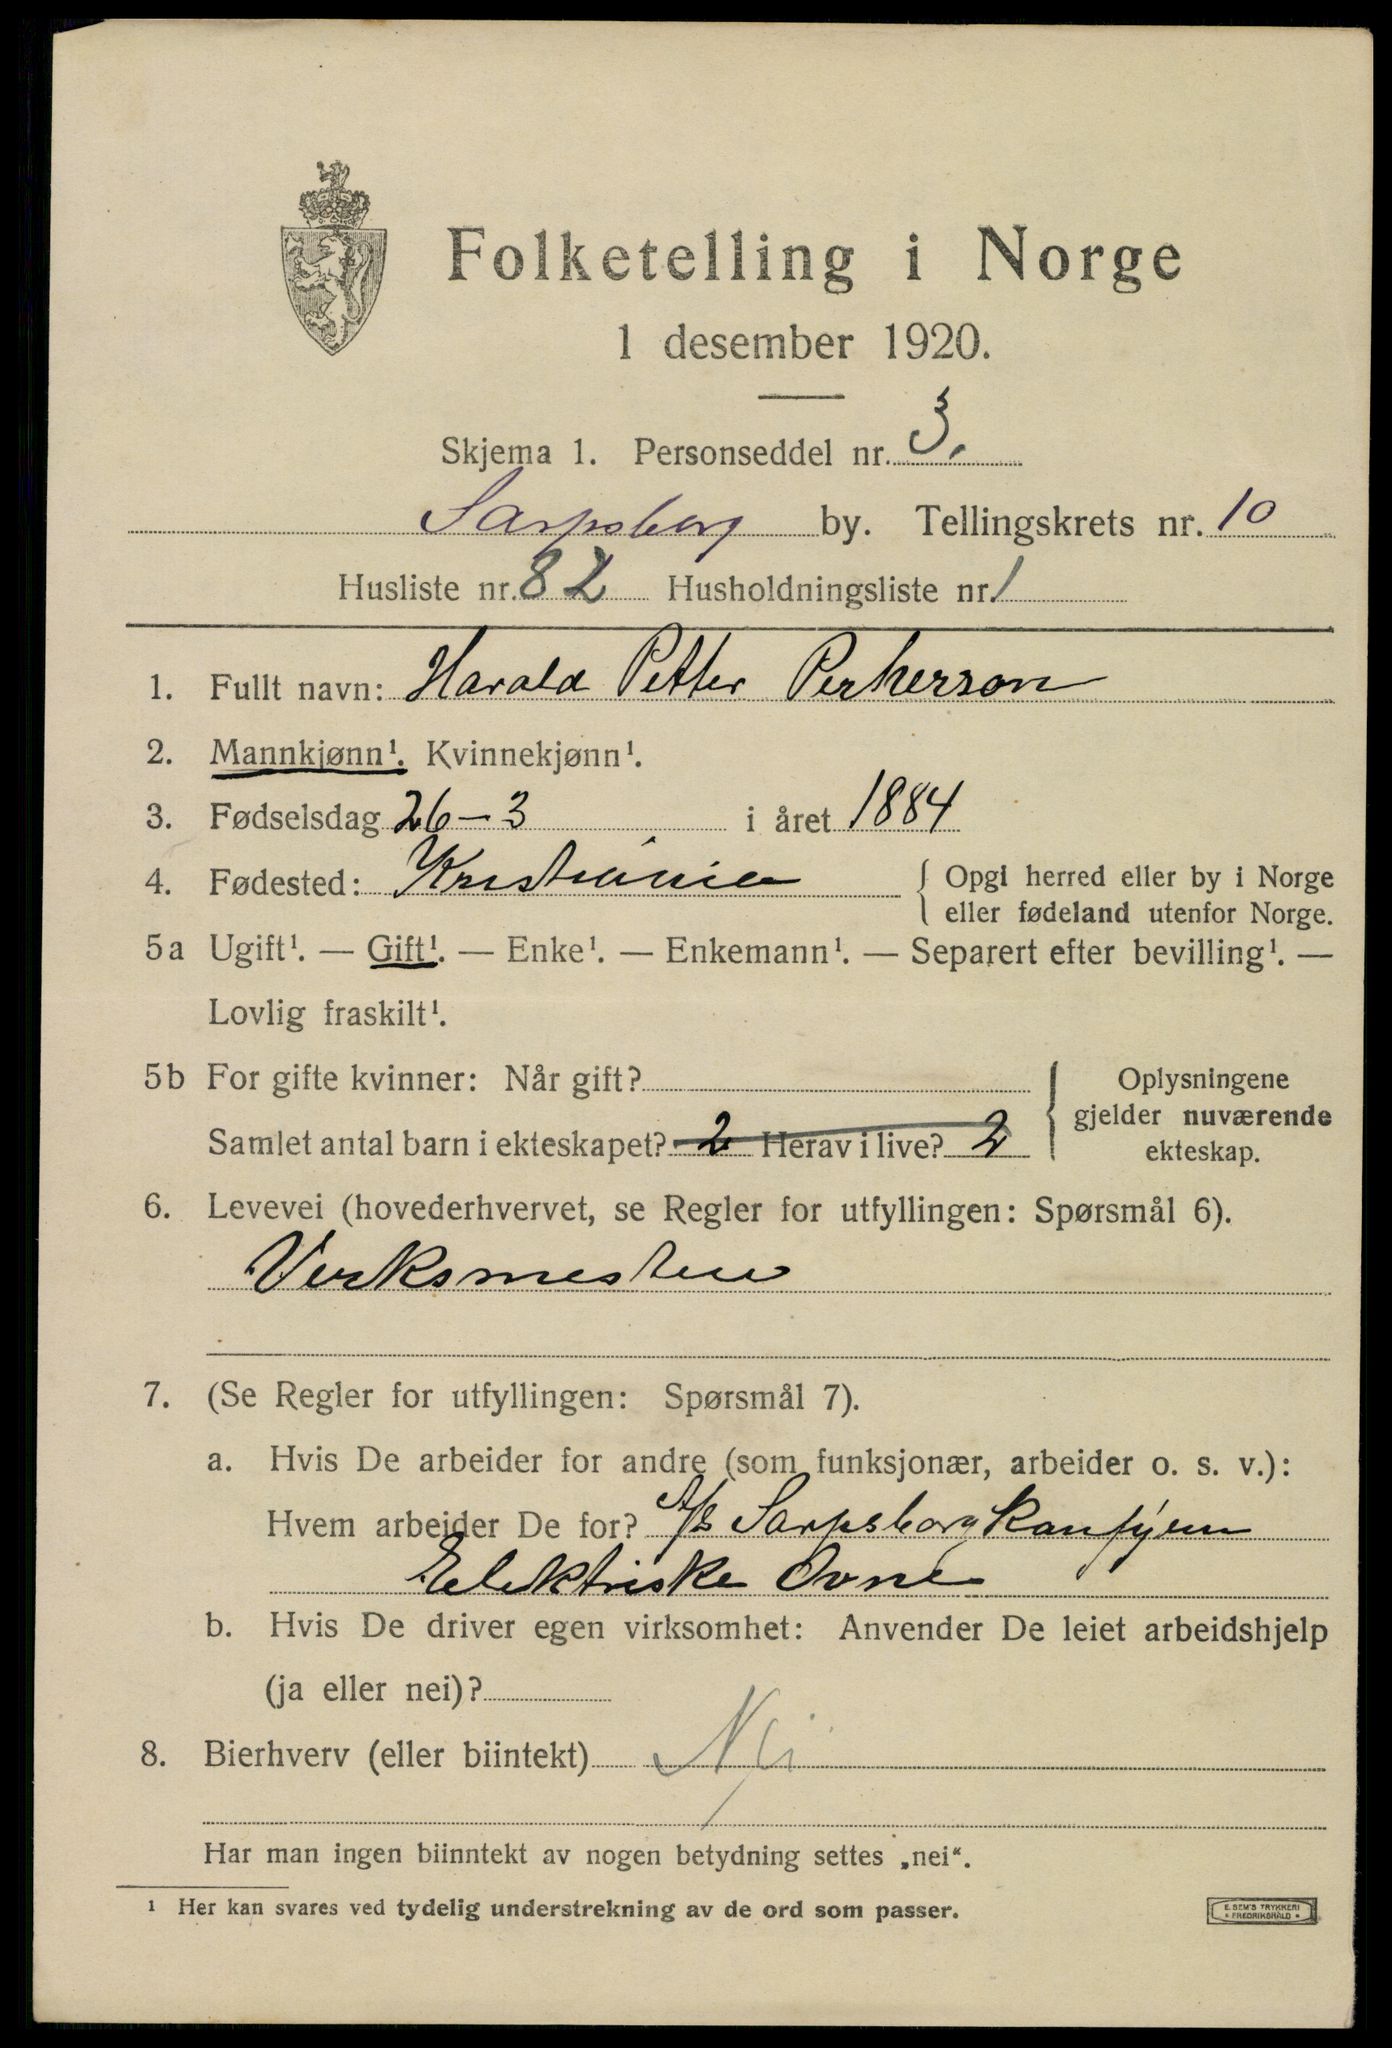 Folketelling i Norge
1 desember 1920.
Skjema 1. Personseddel nr. 3.
Sarpsborg by. Tellingskrets nr. 10
Husliste nr. 82 Husholdningsliste nr. 1
1. Fullt navn: Harald Petter Perherson
2. Mannkjønn¹. Kvinnekjønn¹.
3. Fødselsdag 26-3 i året 1884
4. Fødested: Kristiania { Opgi herred eller by i Norge
eller fødeland utenfor Norge.
5a Ugift¹. — Gift¹. — Enke¹. — Enkemann¹. — Separert efter bevilling¹. —
Lovlig fraskilt¹.
5b For gifte kvinner: Når gift?
Samlet antal barn i ekteskapet? 2 Herav i live? 2
{ Oplysningene
gjelder nuværende
ekteskap.
6. Levevei (hovederhvervet, se Regler for utfyllingen: Spørsmål 6).
Verksmester
7. (Se Regler for utfyllingen: Spørsmål 7).
a. Hvis De arbeider for andre (som funksjonær, arbeider o. s. v.):
Hvem arbeider De for? A/S Sarpsborg
Elektriske Ovne
b. Hvis De driver egen virksomhet: Anvender De leiet arbeidshjelp
(ja eller nei)?
8. Bierhverv (eller biintekt) Nei
Har man ingen biinntekt av nogen betydning settes „nei“.
¹ Her kan svares ved tydelig understrekning av de ord som passer.
E. SEM'S TRYKKERI
FREDRIKSHALD